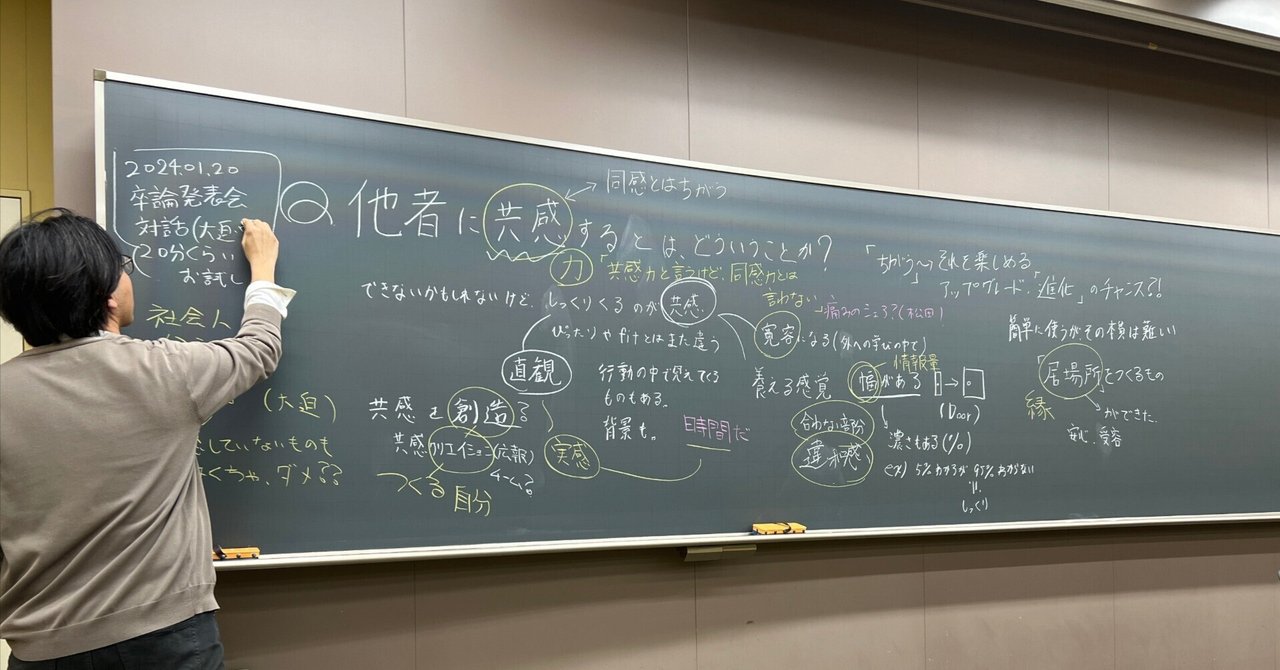 2024.01.20
卒論発表会
対話(大迫
20分くらい
お試し
社会人
(大迫)
していないものも
くちゃ、ダメ??
Q 他者に共感するとは、どういうことか?
同感とはちがう
力
「共感力と言うけど、同感力とは
言わない」
痛みのシェア?(松田)
「ちがう」〜それを楽しめる
アップグレード、「進化」のチャンス?!
できないかもしれないけど、しっくりくるのが共感
ぴったりやfitとはまた違う
直観
行動の中で見えてくる
ものもある。
背景も。
時間だ
共感を創造?
共感クリエイション(広報)
ゲーム?
つくる自分
実感
寛容になる(外への学びの中で)
養える感覚
情報量
幅がある
(Door)
合わない部分
違和感
濃さもある(%)
ex) 5%わかるが95%わからない
しっくり
簡単に使うがその横は難しい
「居場所」をつくるもの
縁
ができた
安心、受容